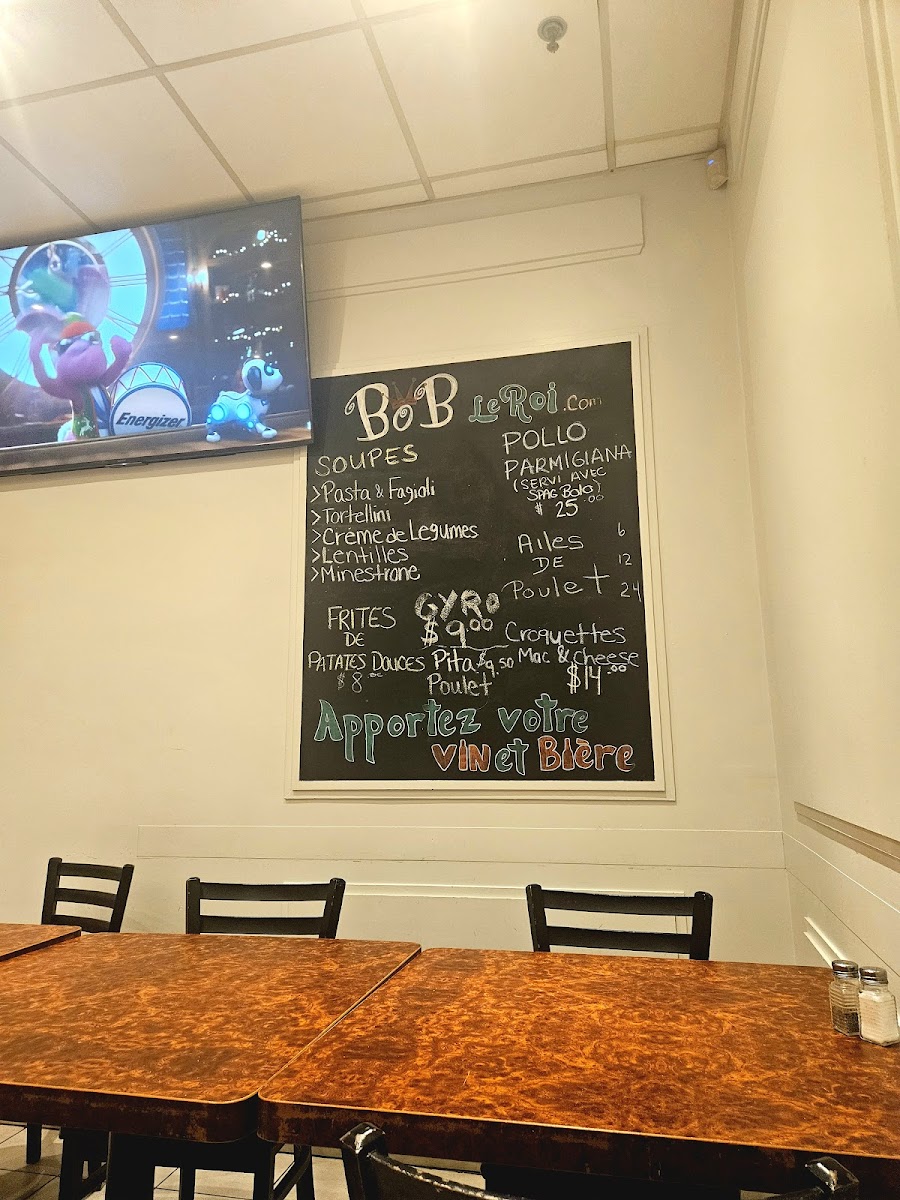 Energizer
BoB LeRoi.com
SOUPES
>Pasta & Fagioli
>Tortellini
>Crème de Legumes
>Lentilles
>Minestrone
POLLO
PARMIGIANA
(SERVI AVEC
SPAG BOLO)
$ 25.00
AILES 6
DE 12
Poulet 24
FRITES
DE
PATATES DOUCES
$8.00
GYRO
$9.00
Pita $9.50
Poulet
Croquettes
Mac & Cheese
$14.00
Apportez votre
VIN et Bière